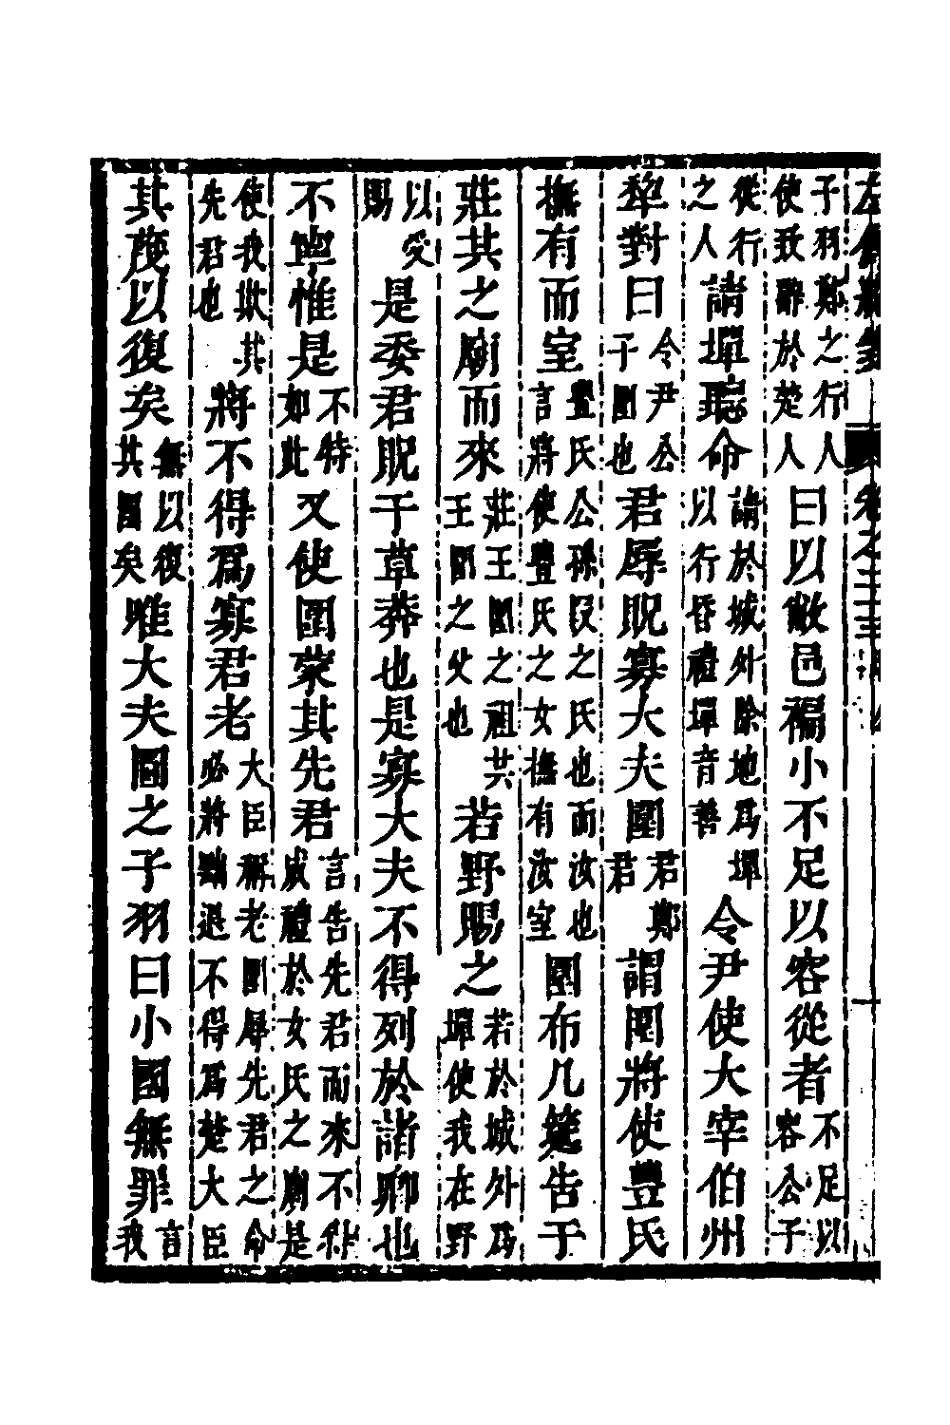 左傳 卷之二十三
子羽鄭之行人使致辭於楚人曰以敝邑褊小不足以容從者不足以容公子
從行之人請墠聽命請於城外除地爲墠以行昏禮墠音善令尹使大宰伯州
犂對曰令尹公子圍也君辱貺寡大夫圍君鄭君謂圍將使豐氏
撫有而室豐氏公孫段之氏也而汝也言將使豐氏之女撫有汝室圍布几筵告于
莊共之廟而來莊王圍之祖共王圍之父也若野賜之若於城外爲墠使我在野
以受賜是委君貺于草莽也是寡大夫不得列於諸卿也
不寧惟是不特如此又使圍蒙其先君言告先君而來不得成禮於女氏之廟是
使我欺其先君也將不得爲寡君老大臣稱老圍辱先君之命必將黜退不得爲楚大臣
其蔑以復矣無以復其圍矣唯大夫圖之子羽曰小國無罪言我